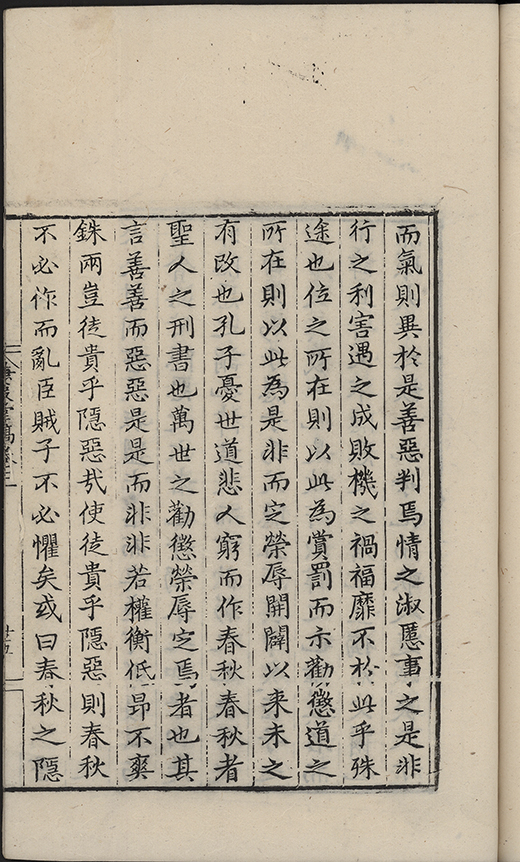 而氣則異於是善惡判焉情之淑慝事之是非
行之利害遇之成敗機之禍福靡不於此乎殊
途也位之所在則以此為賞罰而示勸懲道之
所在則以此為是非而定榮辱開闢以来未之
有改也孔子憂世道悲人窮而作春秋春秋者
聖人之刑書也萬世之勸懲榮辱定焉者也其
言善善而惡惡是是而非非若權衡低昻不爽
銖兩豈徒貴乎隱惡㢤使徒貴乎隱惡則春秋
不必作而亂臣賊子不必懼矣或曰春秋之隱
廿五